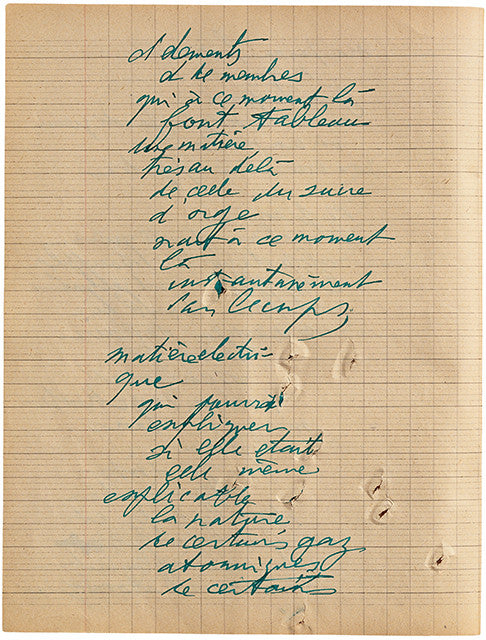 d elements
de membres
qui à ce moment là
font tableau
une matière
très au delà
de celle du sucre
d'orge
nait à ce moment
là
instantanément
dans le corps,
matière electri-
que
qui pourrait
expliquer
si elle etait
elle même
explicable
la nature
de certains gaz
atomiques
de certains